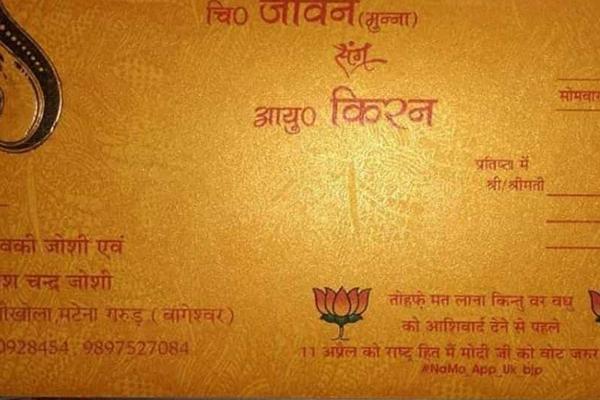 चि० जीवन (मुन्ना)
संग
आयु० किरन
सोमवार
प्रतिष्ठा में
श्री/श्रीमती
वकी जोशी एवं
श चन्द्र जोशी
खोला, मटेना गरुड़ ( बागेश्वर)
0928454, 9897527084
तोहफे मत लाना किन्तु वर वधु
को आशिवार्द देने से पहले
11 अप्रैल को राष्ट्र हित में मोदी जी को वोट जरुर
#NaMo_App_Uk bjp